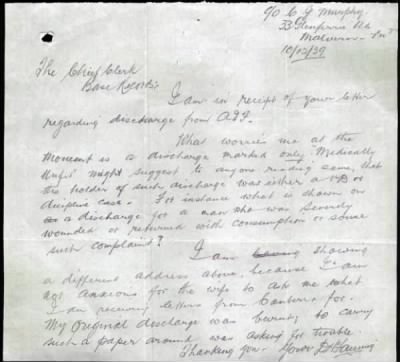 c/o C J Murphy
33 Glenferrie Rd
Malvern
10/12/39
The Chief Clerk
Base Records
I am in receipt of your letter
regarding discharge from AIF.
What worries me at the
moment is a discharge marked only "Medically
Unfit" might suggest to anyone reading same, that
the holder of such discharge was either a VD or
case. For instance what is shown on
a discharge for a man who was severly
wounded or returned with consumption or some
such complaint?
I am showing
a different address above, because I am
not anxious for the wife to ask me what
I am receiving letters from Canberra for.
My original discharge was burnt; to carry
such a paper around was asking for trouble
Thanking you. Yours